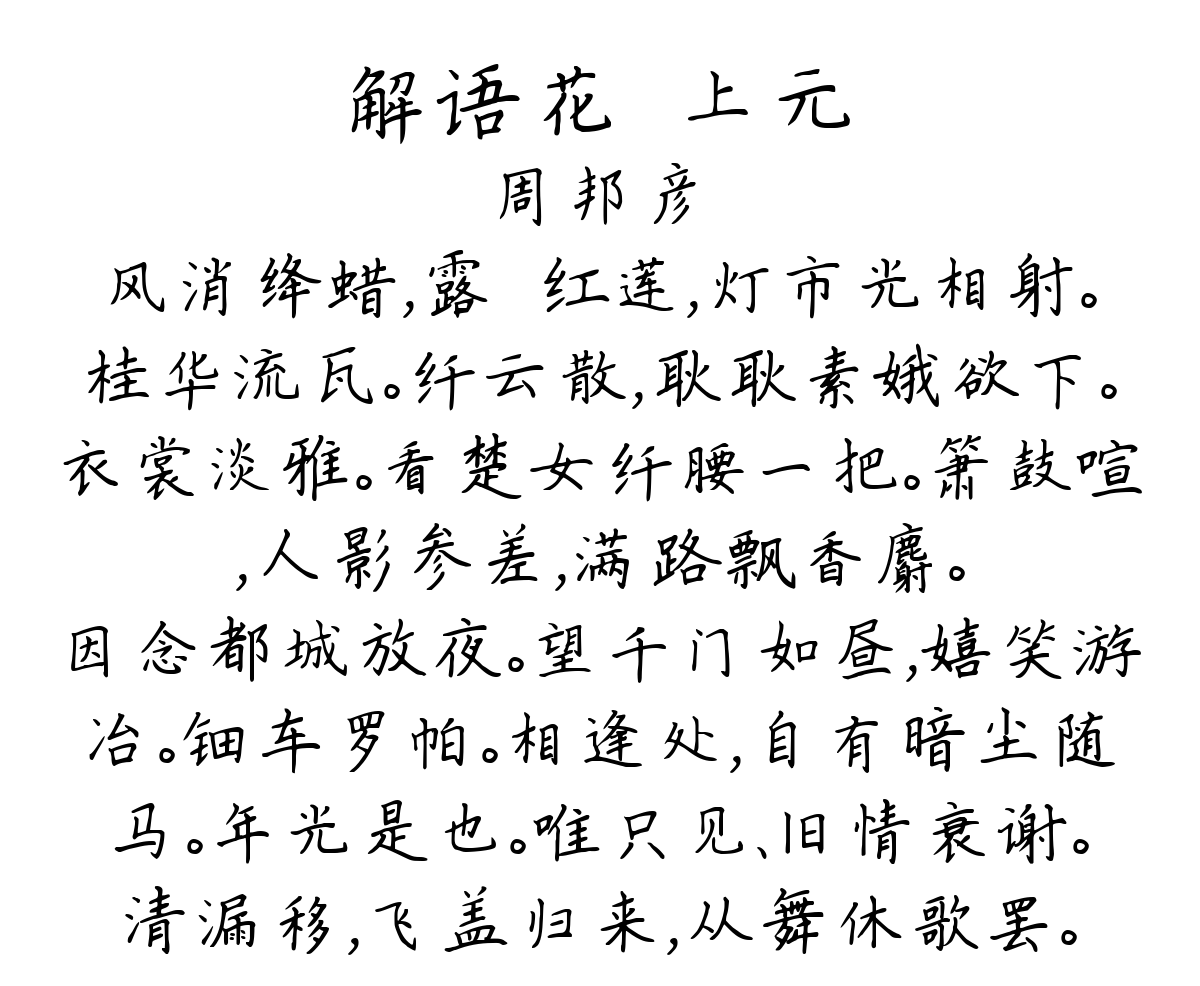 解语花 上元
周邦彦
风消绛蜡,露 红莲,灯市光相射。
桂华流瓦。纤云散,耿耿素娥欲下。
衣裳淡雅。看楚女纤腰一把。箫鼓喧
,人影参差,满路飘香麝。
因念都城放夜。望千门如昼,嬉笑游
冶。钿车罗帕。相逢处,自有暗尘随
马。年光是也。唯只见、旧情衰谢。
清漏移,飞盖归来,从舞休歌罢。